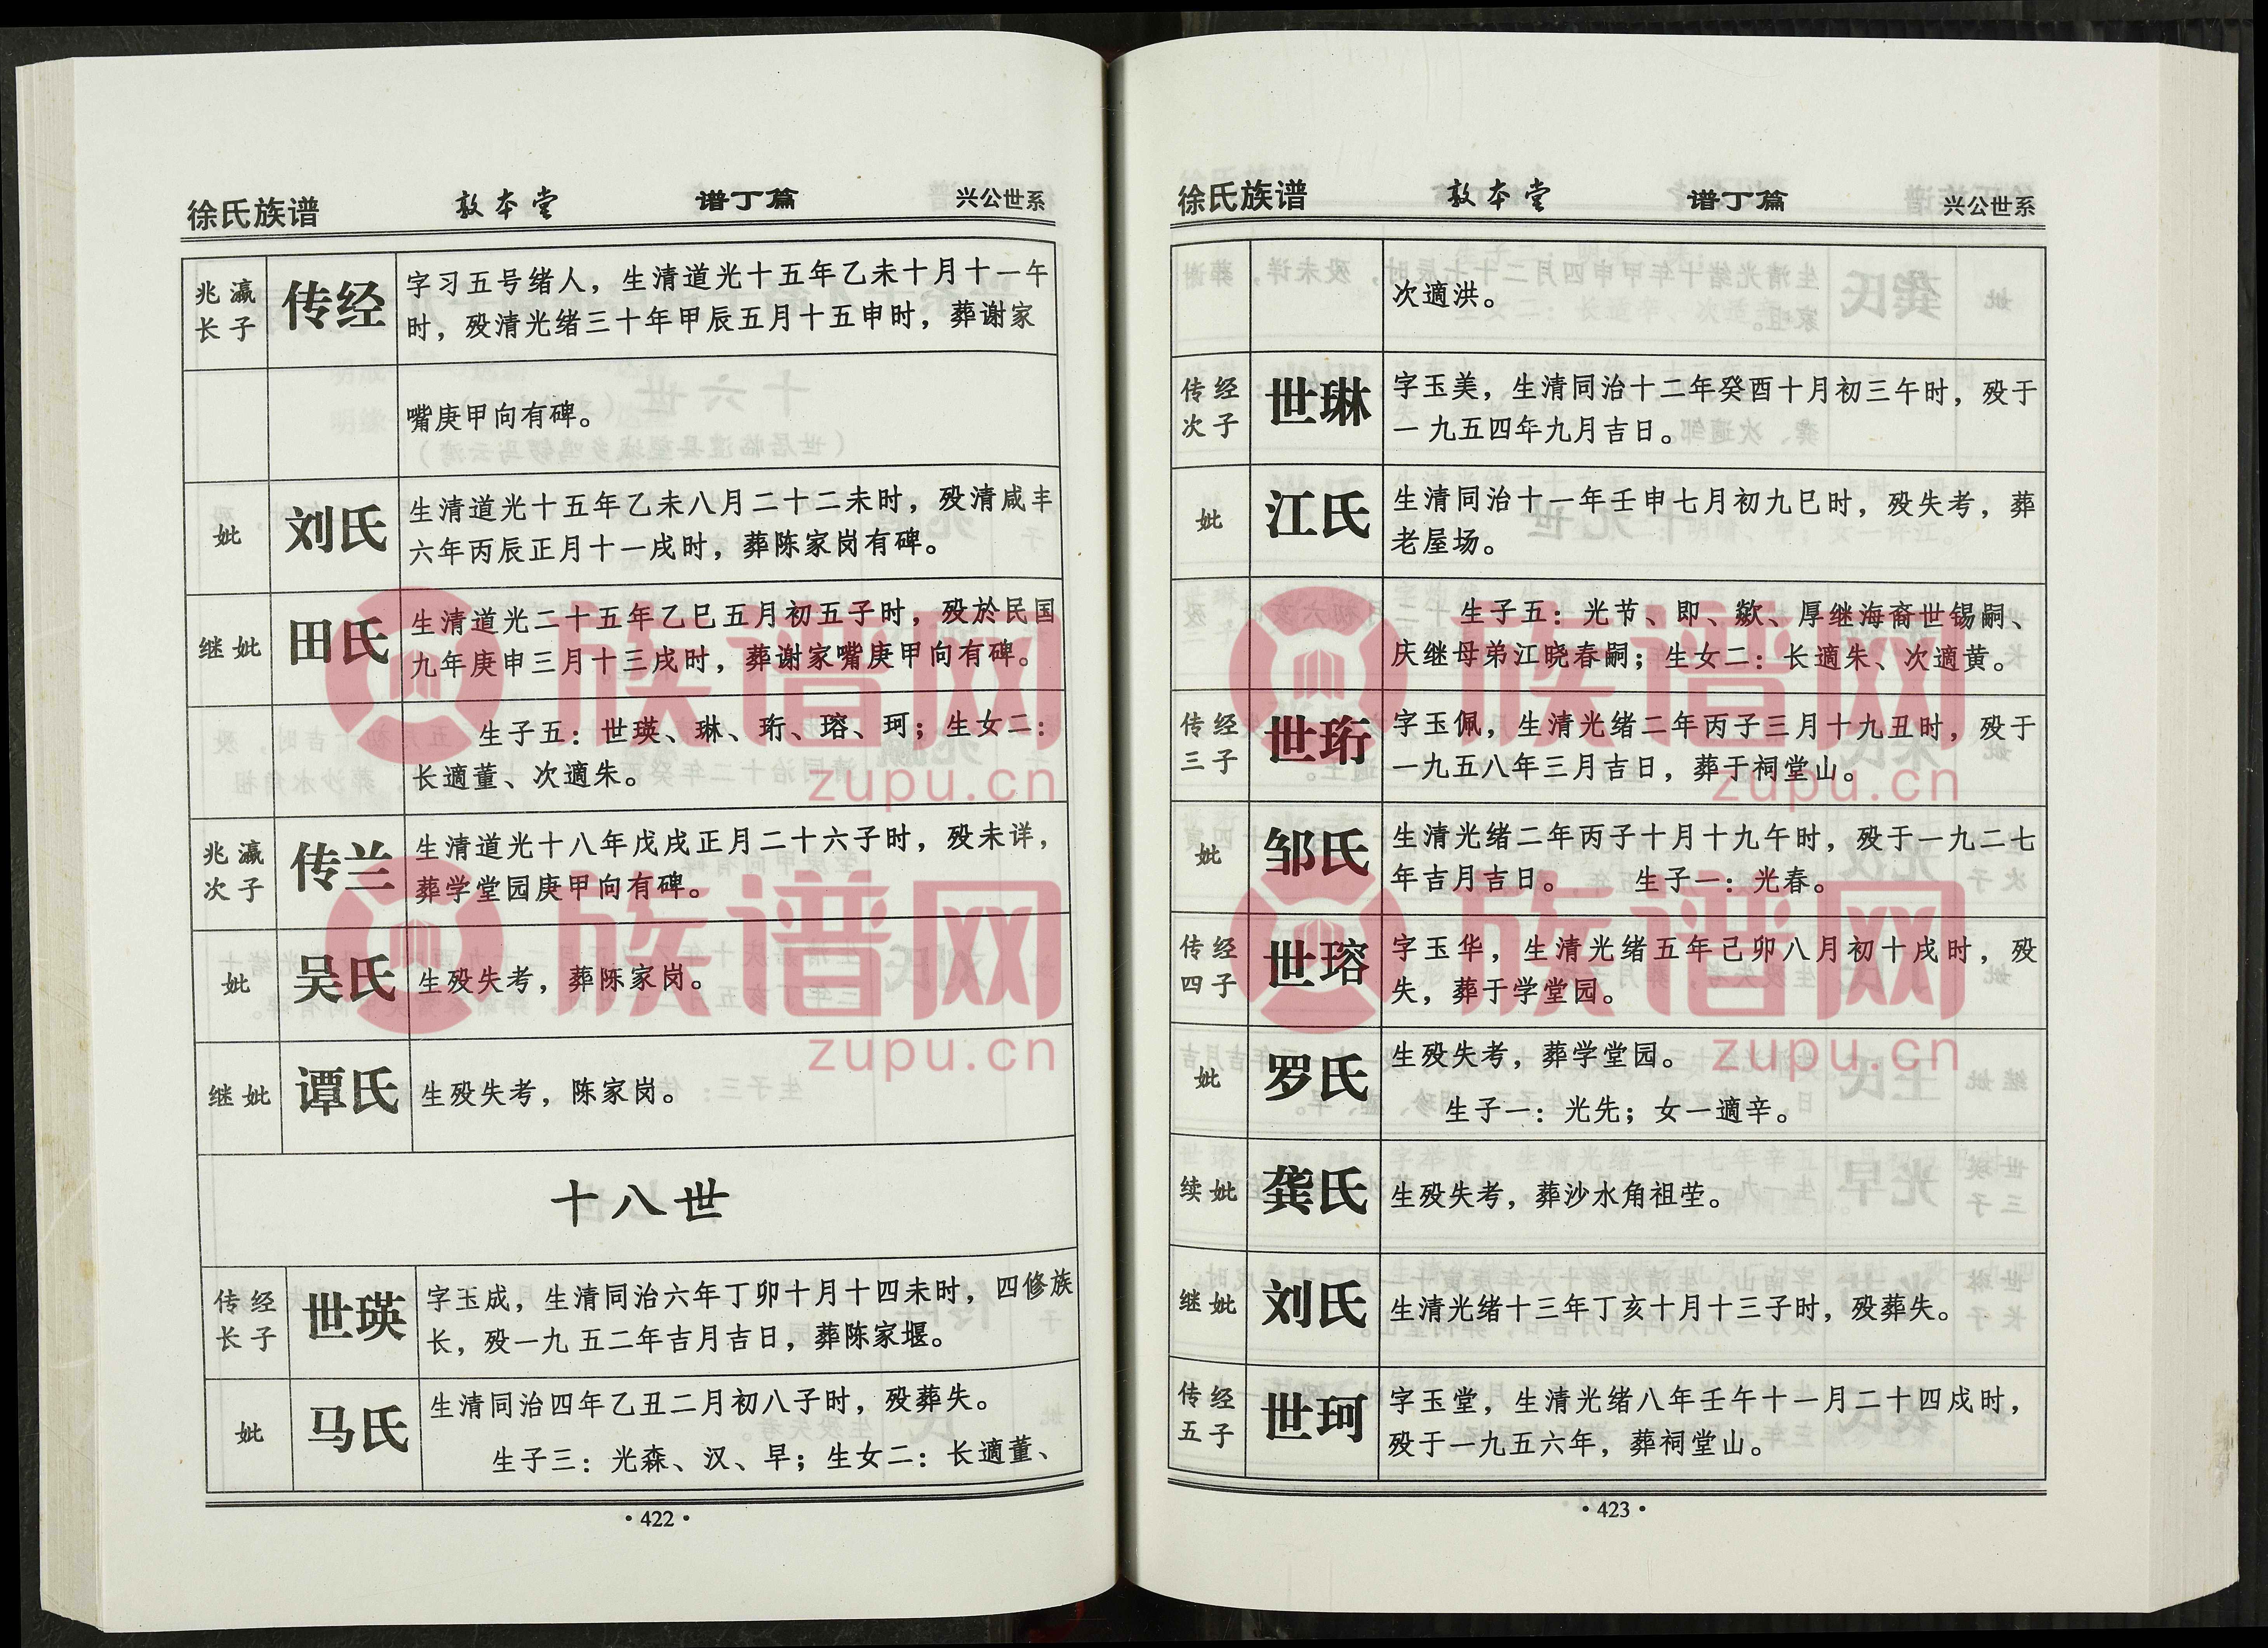 徐氏族谱 敦本堂 谱丁篇 兴公世系
兆瀛
长子
传经
字习五号绪人，生清道光十五年乙未十月十一午
时，殁清光绪三十年甲辰五月十五申时，葬谢家
嘴庚甲向有碑。
妣
刘氏
生清道光十五年乙未八月二十二未时，殁清咸丰
六年丙辰正月十一戌时，葬陈家岗有碑。
继妣
田氏
生清道光二十五年乙巳五月初五子时，殁於民国
九年庚申三月十三戌时，葬谢家嘴庚甲向有碑。
生子五：世瑛、琳、珩、瑢、珂；生女二：
长適董、次適朱。
兆瀛
次子
传兰
生清道光十八年戊戌正月二十六子时，殁未详，
葬学堂园庚甲向有碑。
妣
吴氏
生殁失考，葬陈家岗。
继妣
谭氏
生殁失考，陈家岗。
十八世
传经
长子
世瑛
字玉成，生清同治六年丁卯十月十四未时，四修族
长，殁一九五二年吉月吉日，葬陈家堰。
妣
马氏
生清同治四年乙丑二月初八子时，殁葬失。
生子三：光森、汉、早；生女二：长適董、
·422·
徐氏族谱 敦本堂 谱丁篇 兴公世系
次適洪。
传经
次子
世琳
字玉美，生清同治十二年癸酉十月初三午时，殁于
一九五四年九月吉日。
妣
江氏
生清同治十一年壬申七月初九巳时，殁失考，葬
老屋场。
生子五：光节、即、歘、厚继海裔世锡嗣、
庆继母弟江晓春嗣；生女二：长適朱、次適黄。
传经
三子
世珩
字玉佩，生清光绪二年丙子三月十九丑时，殁于
一九五八年三月吉日，葬于祠堂山。
妣
邹氏
生清光绪二年丙子十月十九午时，殁于一九二七
年吉月吉日。 生子一：光春。
传经
四子
世瑢
字玉华，生清光绪五年己卯八月初十戌时，殁
失，葬于学堂园。
妣
罗氏
生殁失考，葬学堂园。
生子一：光先；女一適辛。
续妣
龚氏
生殁失考，葬沙水角祖茔。
继妣
刘氏
生清光绪十三年丁亥十月十三子时，殁葬失。
传经
五子
世珂
字玉堂，生清光绪八年壬午十一月二十四戌时，
殁于一九五六年，葬祠堂山。
·423·
族谱网
zupu.cn
族谱网
zupu.cn
族谱网
zupu.cn
族谱网
zupu.cn